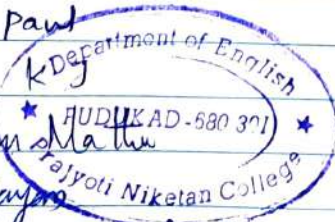 Paul
Department of English
K J
PUDUKAD-680 301
Mathu
Prajyoti Niketan College